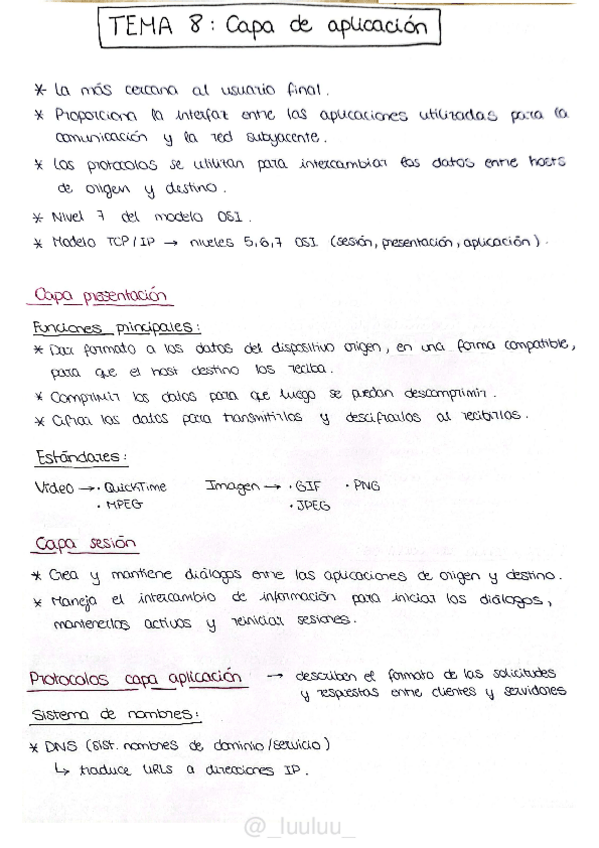 TEMA 8: Capa de aplicación
* La más cercana al usuario final.
* Proporciona la interfaz entre las aplicaciones utilizadas para la
comunicación y la red subyacente.
* Los protocolos se utilizan para intercambiar los datos entre hosts
de origen y destino.
* Nivel 7 del modelo OSI.
* Modelo TCP/IP → niveles 5,6,7 OSI (sesión, presentación, aplicación).
Capa presentación
Funciones principales:
* Dar formato a los datos del dispositivo origen, en una forma compatible,
para que el host destino los reciba.
* Comprimir los datos para que luego se puedan descomprimir.
* Cifrar los datos para transmitirlos y descifrarlos al recibirlos.
Estándares:
Vídeo → · QuickTime Imagen → · GIF · PNG
· MPEG · JPEG
Capa sesión
* Crea y mantiene diálogos entre las aplicaciones de origen y destino.
* Maneja el intercambio de información para iniciar los diálogos,
mantenerlos activos y reiniciar sesiones.
Protocolos capa aplicación → describen el formato de las solicitudes
y respuestas entre clientes y servidores
Sistema de nombres:
* DNS (sist. nombres de dominio/servicio)
↳ traduce URLs a direcciones IP.
@_luuluu_